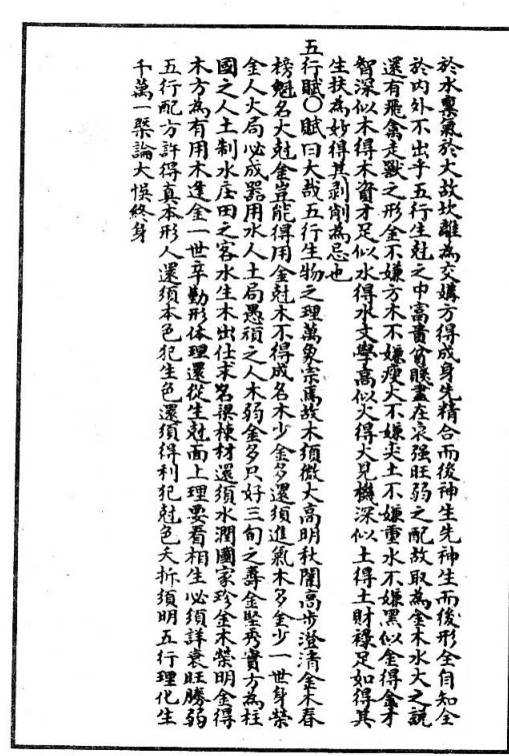 於水稟氣於火故坎離為交媾方得成身先精合而後神生先神生而後形全自知全
於內外不出乎五行生尅之中富貴貧賤盡在衰强旺弱之配故取為金木水火之說
還有飛禽走獸之形金不嫌方木不嫌瘦火不嫌尖土不嫌重水不嫌黑似金得金才
智深似木得木資才足似水得水文學高似火得火見機深似土得土財祿足如得其
生扶為妙得其剥削為忌也
五行賦○賦曰大哉五行生物之理萬象宗焉故木須微火高明秋闈高步澄清金木春
榜魁名火尅金豈能得用金尅木不得成名木少金多還須進氣木多金少一世身榮
金人火局必成器用水人土局愚頑之人木弱金多只好三旬之壽金堅秀實方為柱
國之人土制水庄田之客水生木出仕求名梁棟材還須水潤國家珍金木榮明金得
木方為有用木逢金一世辛勤形体理還從生尅面上理要看相生必須詳衰旺勝弱
五行配方許得真本形人還須本色犯生色還須得利犯尅色夭折須明五行理化生
千萬一槩論大悞終身